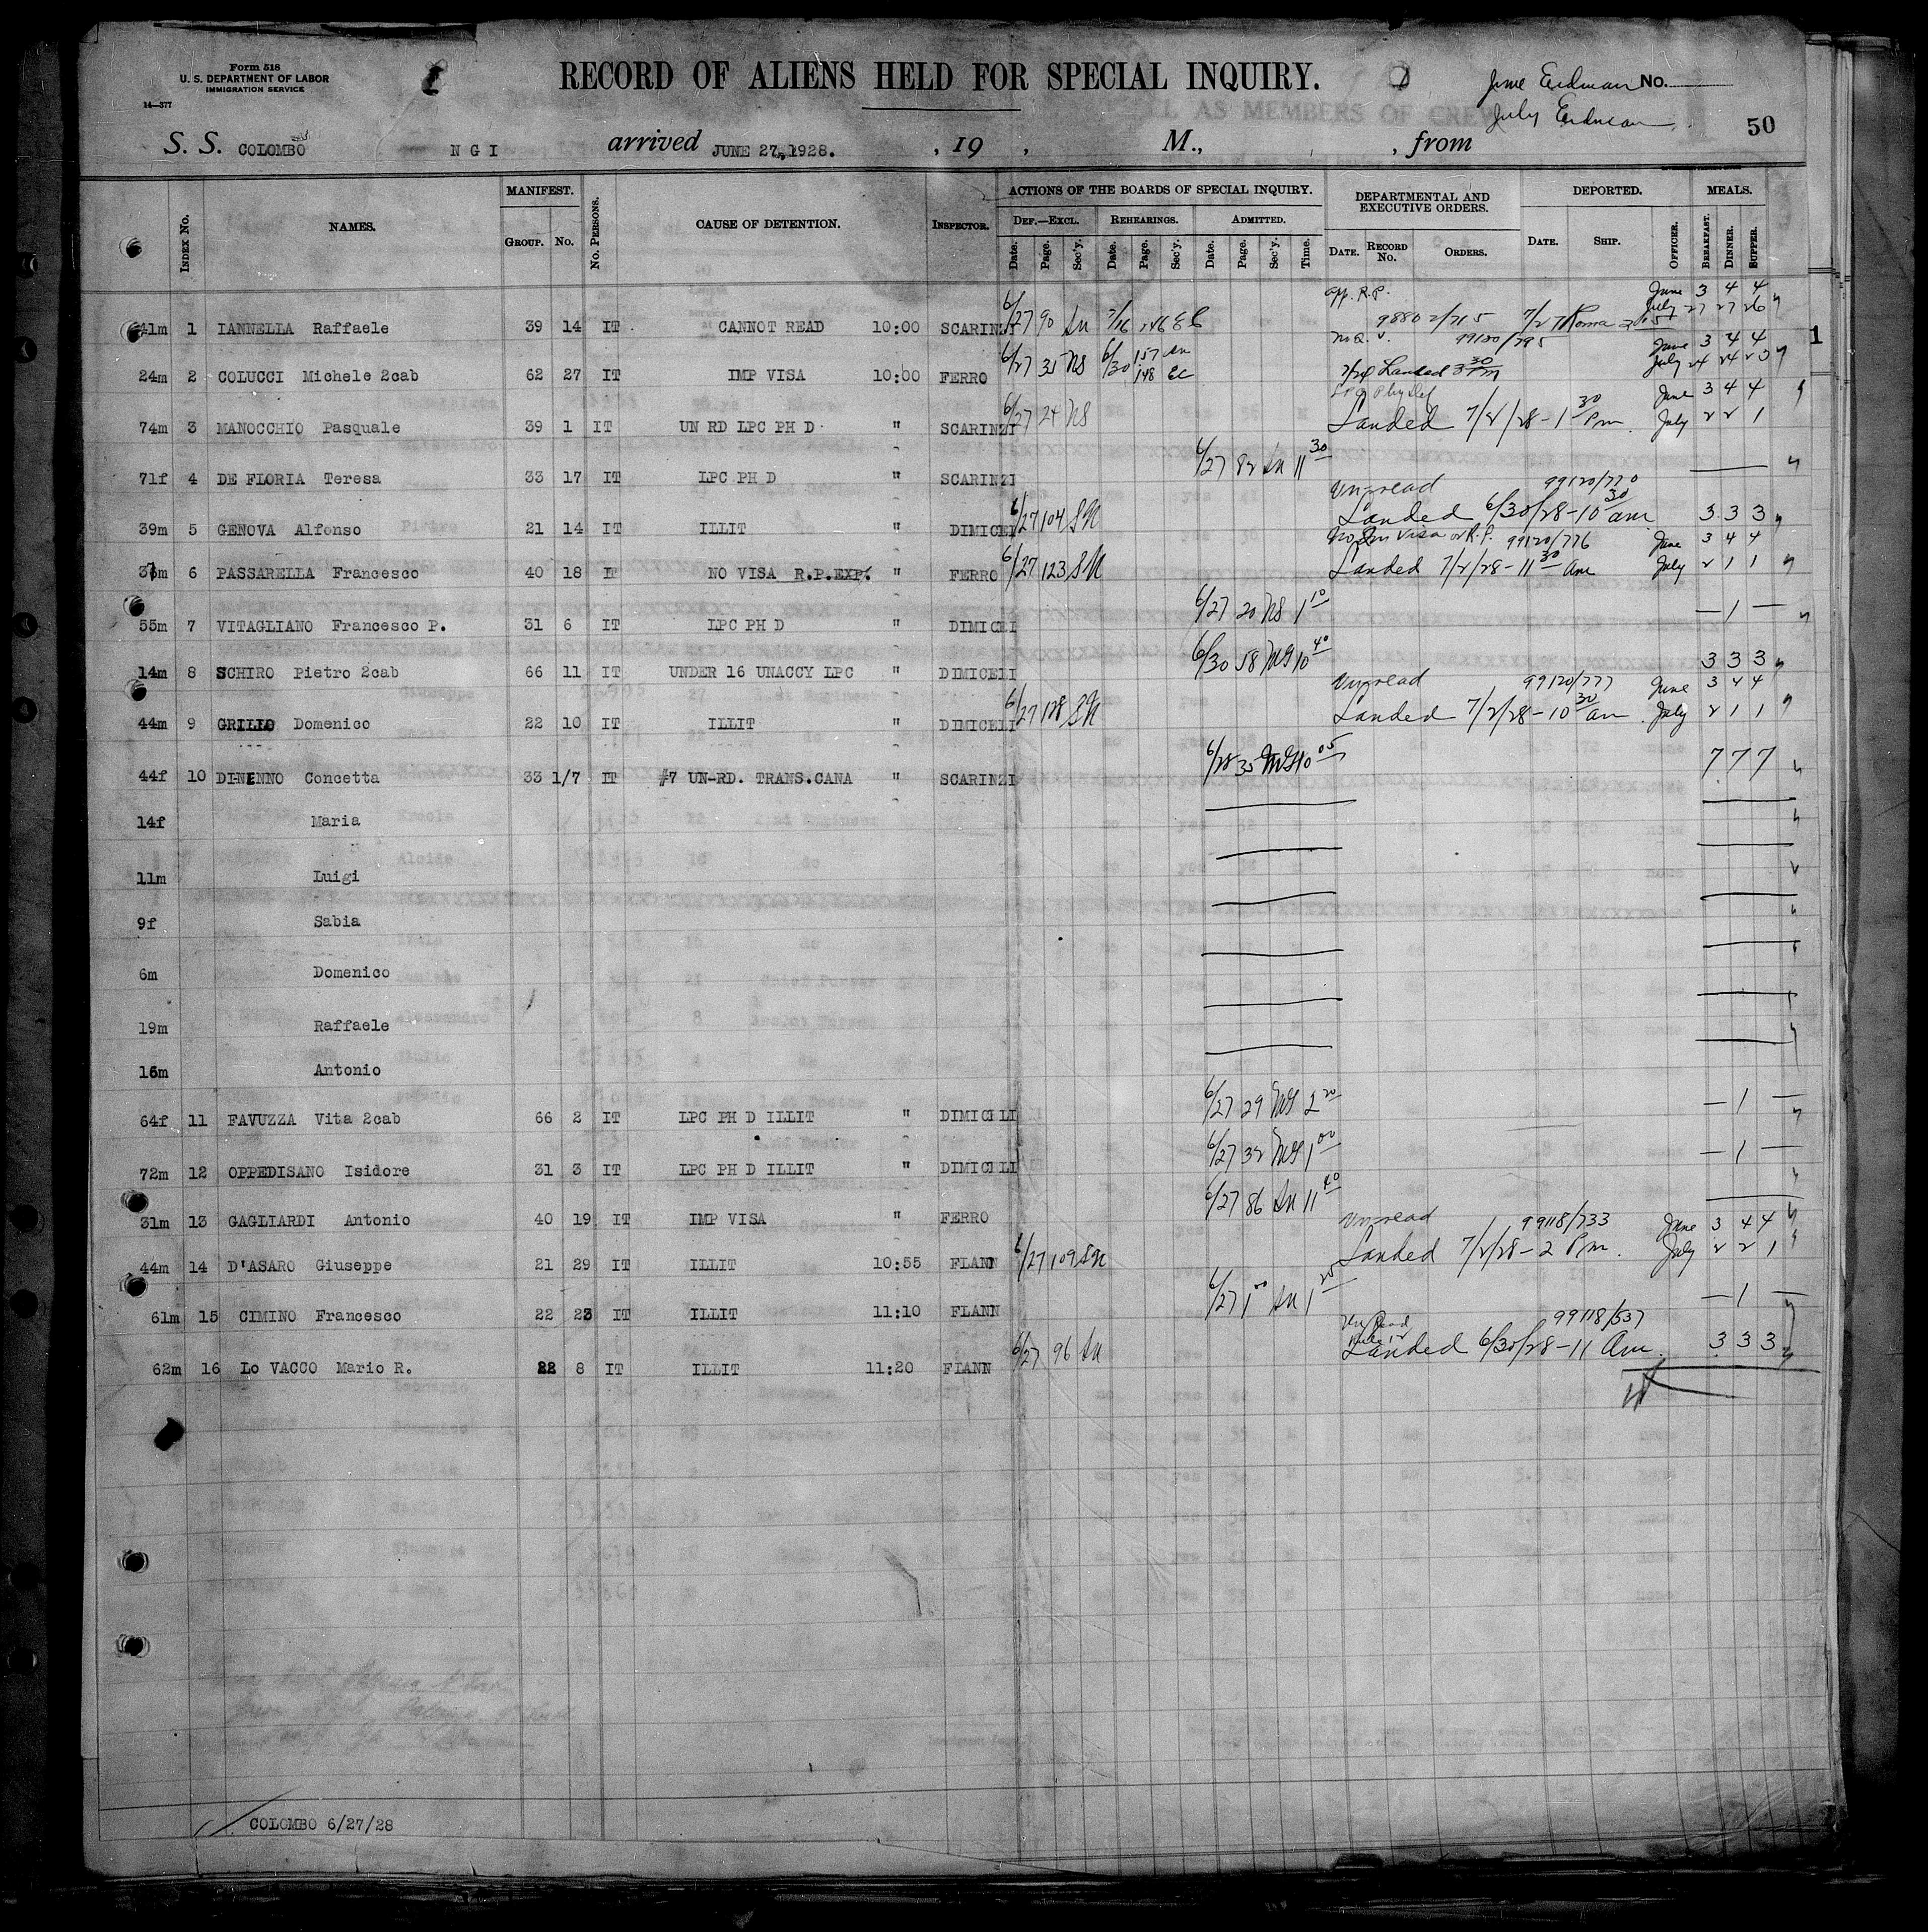 Form 518
U. S. DEPARTMENT OF LABOR
IMMIGRATION SERVICE
14—377
RECORD OF ALIENS HELD FOR SPECIAL INQUIRY.
June Erdman No.
July Erdman
50
S. S. COLOMBO N G I arrived JUNE 27, 1928. , 19 , M., , from
Index No. NAMES. MANIFEST. Group. No. No. Persons. CAUSE OF DETENTION. Inspector. ACTIONS OF THE BOARDS OF SPECIAL INQUIRY. DEPARTMENTAL AND EXECUTIVE ORDERS. DEPORTED. MEALS.
Def.—Excl. Rehearings. Admitted.
Date. Page. Sec'y. Date. Page. Sec'y. Date. Page. Sec'y. Time. Date. Record No. Orders. Date. Ship. Officer. Breakfast. Dinner. Supper.
app. R.P. June 3 4 4
41m 1 IANNELLA Raffaele 39 14 IT CANNOT READ 10:00 SCARINZI 6/27 90 7/16 146 98802/715 7/27 Roma July 27 27 26
99120/795 June 3 4 4
24m 2 COLUCCI Michele 2cab 62 27 IT IMP VISA 10:00 FERRO 6/27 35 NS 6/30 157 148 EC Landed 3 30 Pm July 24 24 23
June 3 4 4
74m 3 MANOCCHIO Pasquale 39 1 IT UN RD LPC PH D " SCARINZI 6/27 24 NS Landed 7/2/28 - 1 30 Pm July 2 2 1
71f 4 DE FLORIA Teresa 33 17 IT LPC PH D " SCARINZI 6/27 82 11 30
Unread 99120/770
39m 5 GENOVA Alfonso 21 14 IT ILLIT " DIMICELI 6/27 104 SN Landed 6/30/28 - 10 30 am 3 3 3
Visa or R.P. 99120/776 June 3 4 4
37m 6 PASSARELLA Francesco 40 18 IT NO VISA R.P.EXP. " FERRO 6/27 123 SN Landed 7/2/28 - 11 30 am July 2 1 1
55m 7 VITAGLIANO Francesco P. 31 6 IT LPC PH D " DIMICELI 6/27 20 NS 1 10 — 1 —
14m 8 SCHIRO Pietro 2cab 66 11 IT UNDER 16 UNACCY LPC " DIMICELI 6/30 58 MG 10 40 3 3 3
Unread 99120/777 June 3 4 4
44m 9 GRILLO Domenico 22 10 IT ILLIT " DIMICELI 6/27 128 SN Landed 7/2/28 - 10 30 am July 2 1 1
44f 10 DI-NENNO Concetta 33 1/7 IT #7 UN-RD. TRANS.CANA " SCARINZI 6/28 35 MG 10 05 7 7 7
14f Maria
11m Luigi
9f Sabia
6m Domenico
19m Raffaele
16m Antonio
64f 11 FAVUZZA Vita 2cab 66 2 IT LPC PH D ILLIT " DIMICELI 6/27 29 MG 2 20 — 1 —
72m 12 OPPEDISANO Isidore 31 3 IT LPC PH D ILLIT " DIMICELI 6/27 32 MG 1 00 — 1 —
31m 13 GAGLIARDI Antonio 40 19 IT IMP VISA " FERRO 6/27 86 11 40
Unread 99118/733 June 3 4 4
44m 14 D'ASARO Giuseppe 21 29 IT ILLIT 10:55 FLANN 6/27 109 SN Landed 7/2/28 - 2 Pm. July 2 2 1
61m 15 CIMINO Francesco 22 23 IT ILLIT 11:10 FLANN 6/27 — 1 —
99118/537
62m 16 Lo VACCO Mario R. 22 8 IT ILLIT 11:20 FLANN 6/27 96 Landed 6/30/28 - 11 Am. 3 3 3
COLOMBO 6/27/28
1